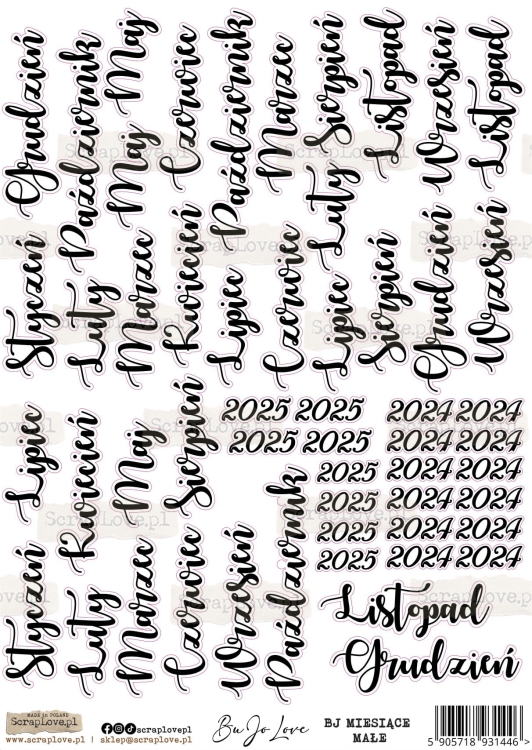 Grudzień
Październik
Maj
Czerwiec
Październik
Marzec
Sierpień
Listopad
Wrzesień
Listopad
Maj
Luty
Styczeń
Luty
Marzec
Kwiecień
Lipiec
Czerwiec
Lipiec
Sierpień
Grudzień
Wrzesień
Lipiec
Kwiecień
Maj
Sierpień
2025 2025
2025 2025
2025
2025
2025
2025
2024 2024
2024 2024
2024 2024
2024 2024
2024 2024
2024 2024
Styczeń
Luty
Marzec
Czerwiec
Wrzesień
Październik
Listopad
Grudzień
MADE in POLAND
ScrapLove.pl
www.scraplove.pl | sklep@scraplove.pl
scraplovepl
BuJo Love
BJ MIESIĄCE
MAŁE
5 905718 931446
ScrapLove.pl